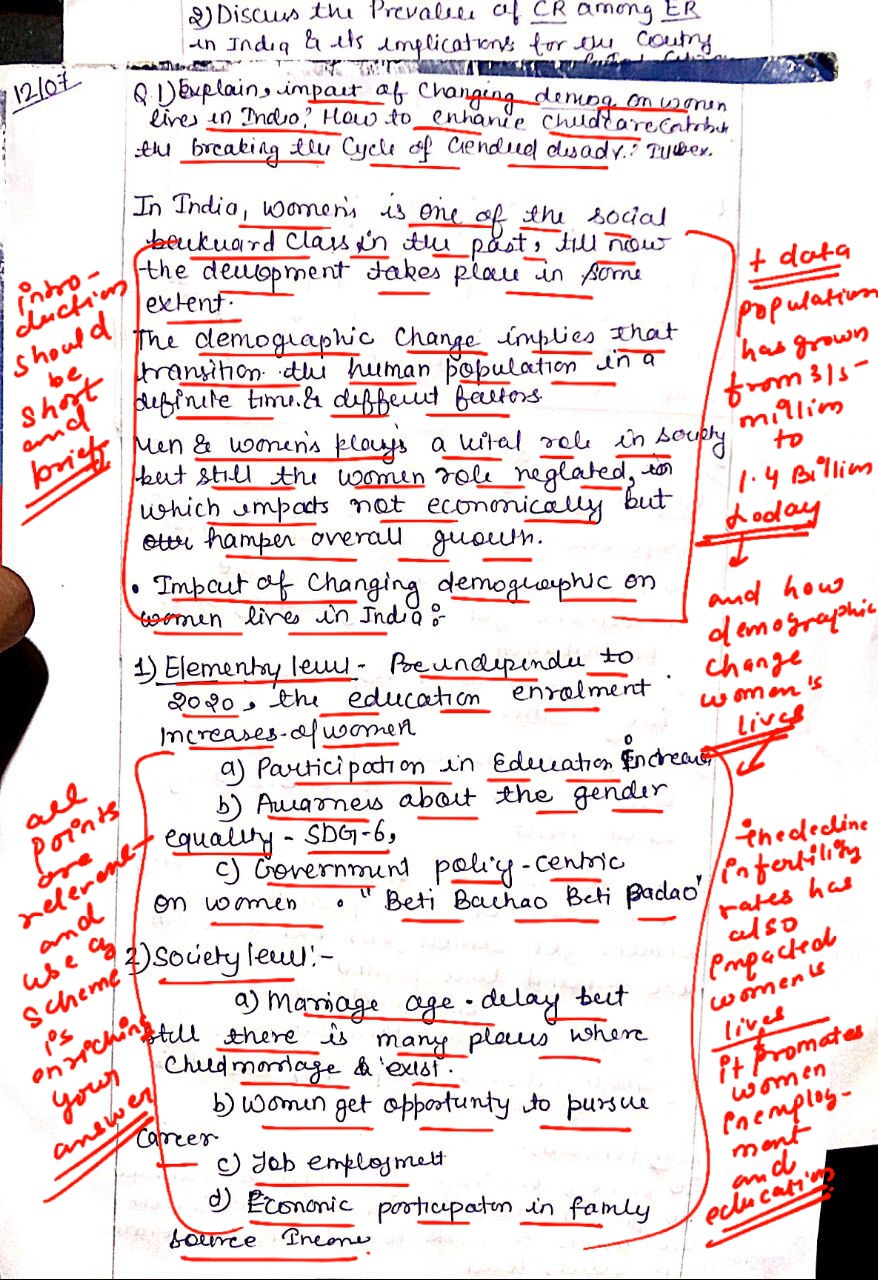 2) Discuss the Prevalece of CR among ER
in India & its implications for the Coutry
12/07
Q.1) Explain, impact of Changing demog on women
lives in India? How to enhance childcare Contribut
the breaking the Cycle of Gendued disadv.?
In India, women's is one of the social
backward class in the past, till now
the development takes place in some
extent.
The demographic Change implies that
transition the human population in a
definite time & different factors.
Men & women's plays a vital role in society
but still the women role neglated, in
which impacts not economically but
hamper overall growth.
• Impact of Changing demographic on
women lives in India :-
1) Elementry level - Pre independe to
2020, the education enrolment
Increases of women
a) Participation in Education Increase
b) Awarness about the gender
equality - SDG-6,
c) Government policy-centric
on women • "Beti Bachao Beti Padao"
2) Society level :-
a) Marriage age - delay but
still there is many places where
Child marriage & exist.
b) women get opportunity to pursue
Career
c) Job employmett
d) Economic participaton in family
source Income.
intro-
duction
should
be
short
and
brief
+ data
population
has grown
from 315-
million
to
1.4 Billion
today
and how
demographic
change
women's
lives
all
points
are
relevent
and
use of
scheme
is
enriching
your
answer
the decline
in fertility
rates has
also
impacted
women's
lives
it promotes
women
in employ-
ment
and
education